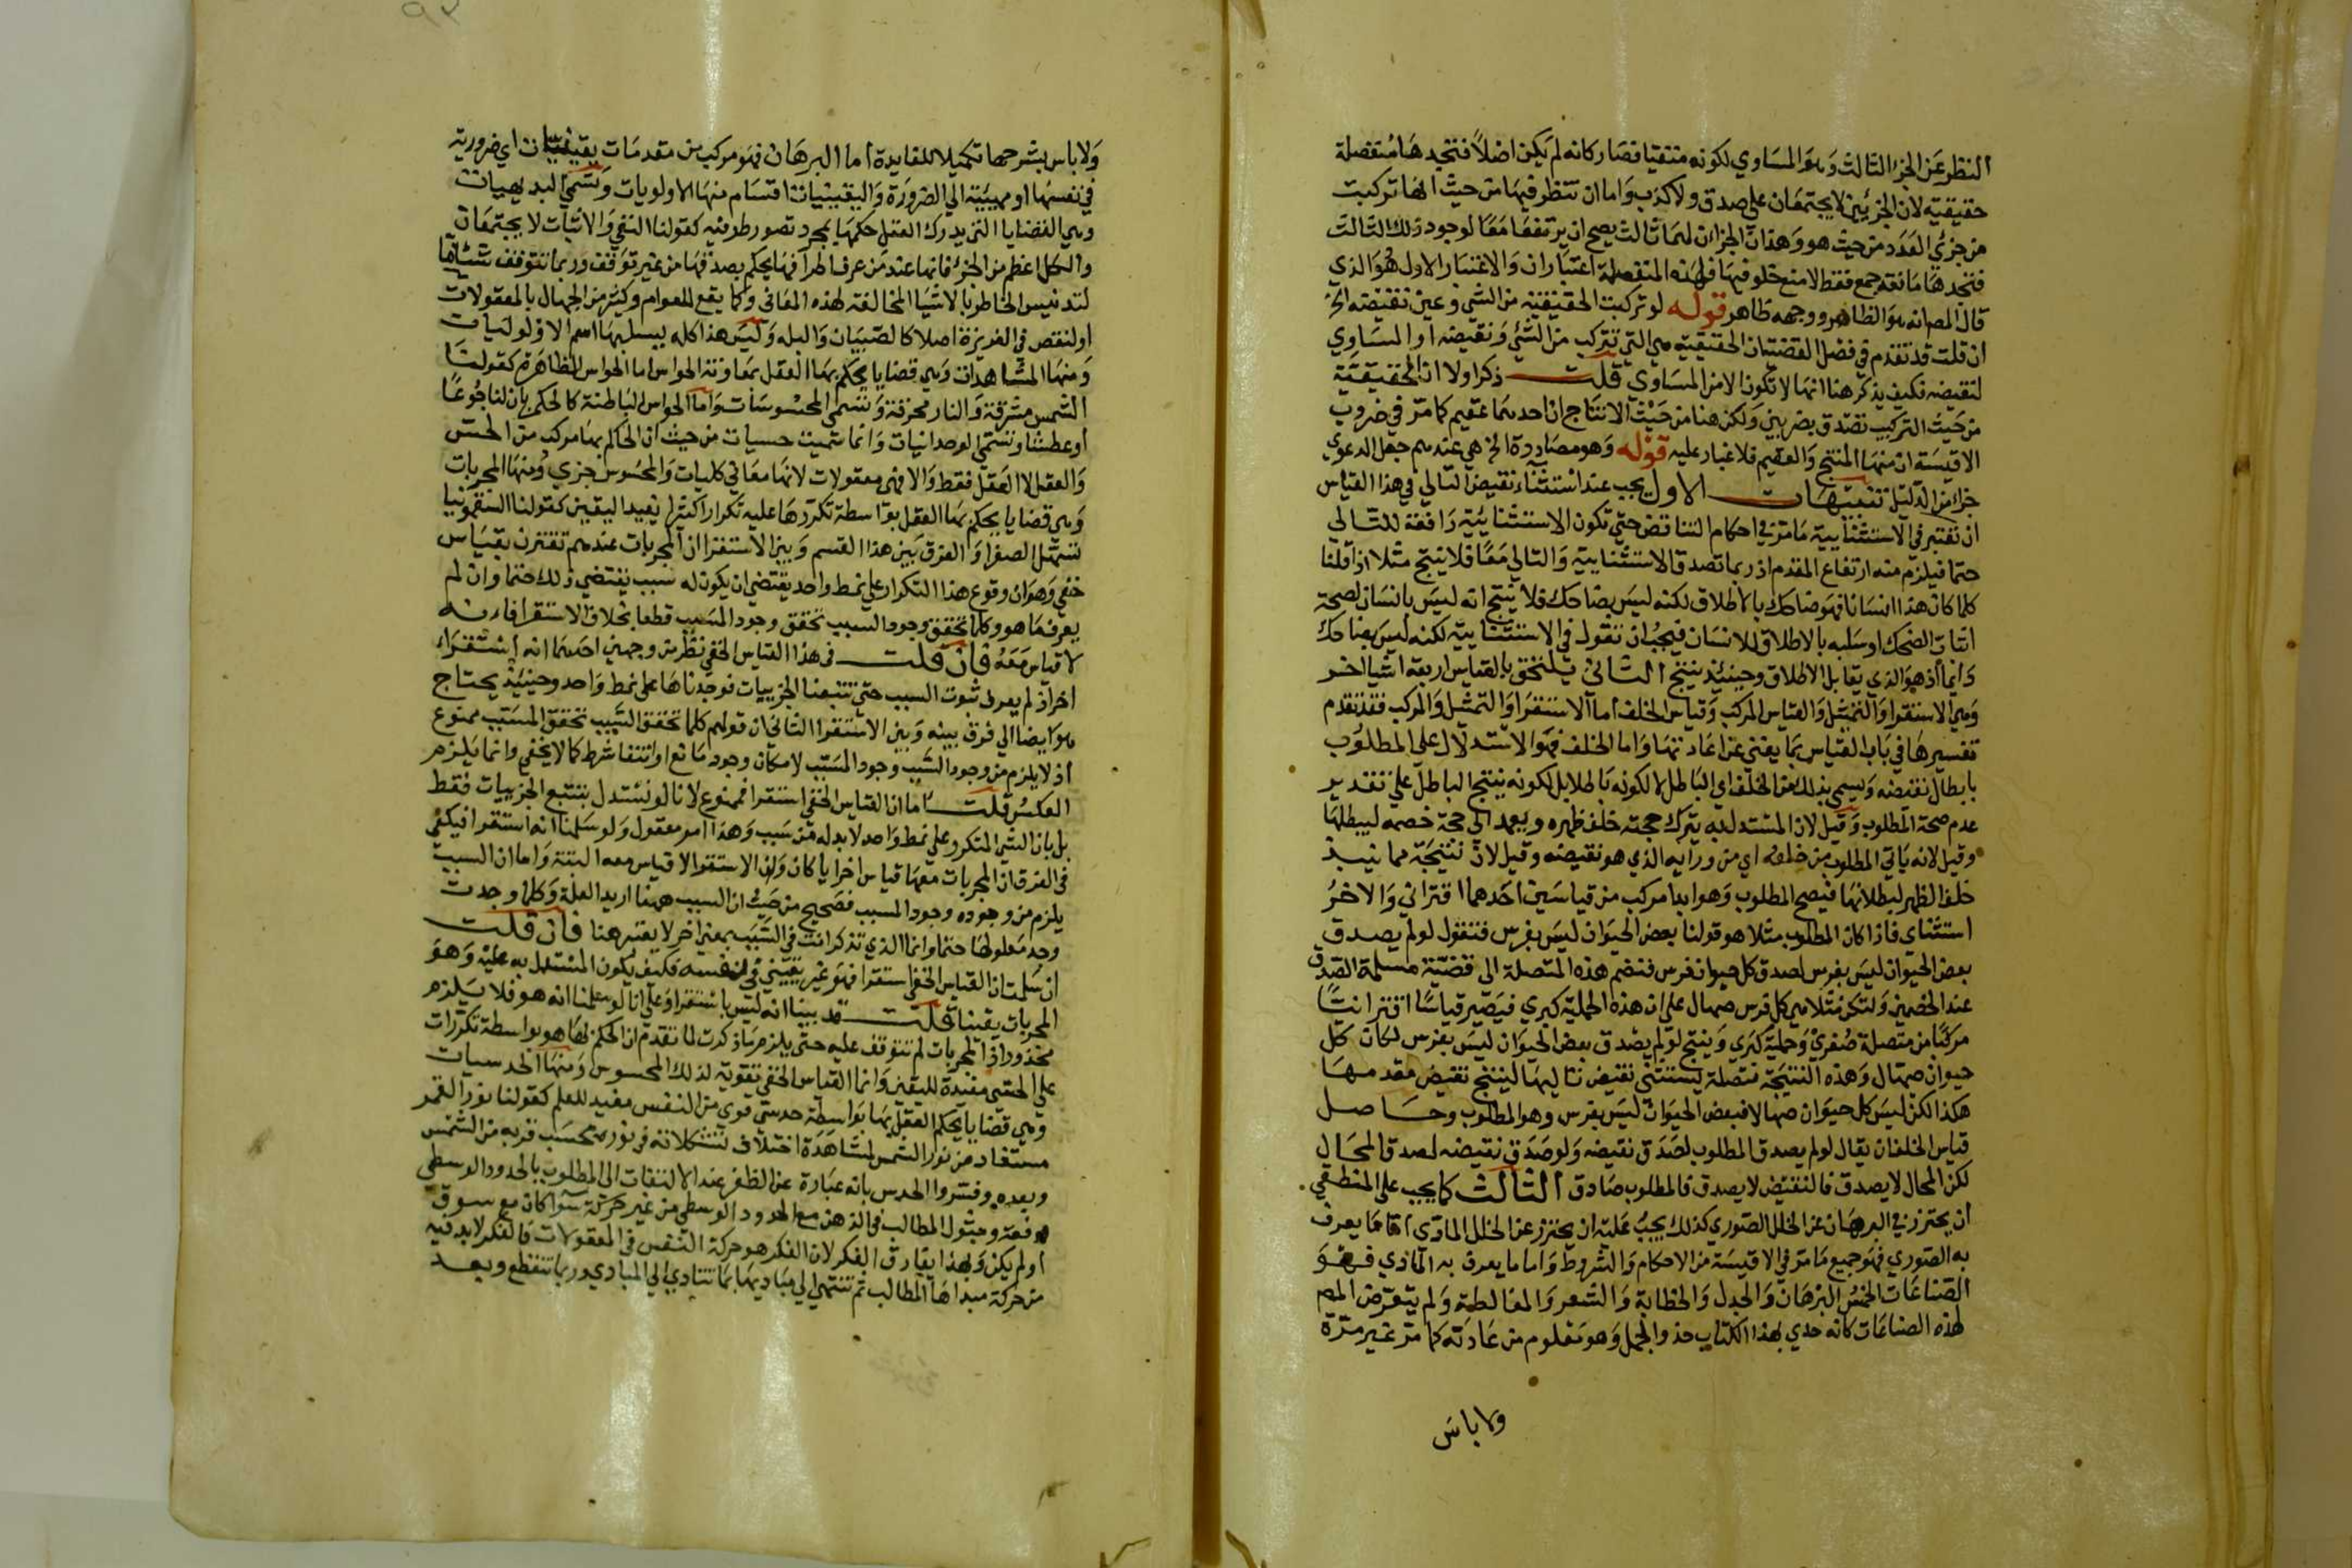 النظر عن الجزء الثالث وهو المساوي لكونه منتفيا فصار كانه لم يكن اصلا فتجدها منفصلة
حقيقية لان الجزئين لا يجتمعان على صدق ولا كذب واما ان تنظر فيها من حيث انها تركبت
من جزئي العدد من حيث هو وهذان الجزءان لهما ثالث يصح ان يرتفعا معا لوجود ذلك الثالث
فتجدها مانعة جمع فقط لا منع خلو فيها فلهذه المنفصلة اعتباران والاعتبار الاول هو الذي
قال المص انه هو الظاهر ووجهه ظاهر قوله لو تركبت الحقيقية من الشي وعين نقيضه الخ
ان قلت قد تقدم في فصل القضية ان الحقيقية هي التي تتركب من الشئ ونقيضه او المساوي
لنقيضه فكيف يذكر هنا انها لا تكون الا من المساوي قلت ذكر اولا ان الحقيقية
من حيث التركيب تصدق بضربين ولكن هنا من حيث الانتاج ان احدهما عقيم كما مر في ضروب
الاقيسة ان منها المنتج والعقيم فلا غبار عليه قوله وهو مصادرة الخ هي عندهم جعل الدعوى
جزا من الدليل تنبيهات الاول يجب عند استثناء نقيض التالي في هذا القياس
ان تعتبر في الاستثنايية ما مر في احكام التناقض حتى تكون الاستثنائية رافعة للتالي
حتما فيلزم منه ارتفاع المقدم اذ ربما تصدق الاستثنايية والتالي معا فلا ينتج مثلا اذا قلنا
كلما كان هذا انسانا فهو ضاحك بالاطلاق لكنه ليس بضاحك فلا ينتج انه ليس بانسان لصحة
اثبات الضحك او سلبه بالاطلاق للانسان فيجب ان تقول في الاستثنايية لكنه ليس بضاحك
دايما اذ هو الذي يقابل الاطلاق وحينئذ ينتج الثاني يلتحق بالقياس اربعة اشيا اخر
وهي الاستقرا والتمثيل والقياس المركب وقياس الخلف اما الاستقرا والتمثيل والمركب فقد تقدم
تفسيرها في باب القياس بما يغني عن اعادتها واما الخلف فهو الاستدلال على المطلوب
بابطال نقيضه ويسمى بذلك من الخلف اي الباطل لا لكونه باطلا بل لكونه ينتج الباطل على تقدير
عدم صحة المطلوب وقيل لان المستدل به يترك حجته خلف ظهره ويعمد الى حجة خصمه ليبطلها
وقيل لانه ياتي المطلوب من خلفه اي من ورائه الذي هو نقيضه وقيل لان نتيجته مما ينبذ
خلف الظهر لبطلانها فيصح المطلوب وهو ابدا مركب من قياسين احدهما اقتراني والاخر
استثناي فاذا كان المطلوب مثلا هو قولنا بعض الحيوان ليس بفرس فتقول لو لم يصدق
بعض الحيوان ليس بفرس لصدق كل حيوان فرس فتضم هذه المتصلة الى قضية مسلمة الصدق
عند الخصمين ولتكن مثلا هي كل فرس صهال على ان هذه الحملية كبرى فيصير قياسا اقترانيا
مركبا من متصلة صغرى وحملية كبرى وينتج لو لم يصدق بعض الحيوان ليس بفرس لكان كل
حيوان صهال وهذه النتيجة متصلة يستثني نقيض تاليها لينتج نقيض مقدمها
هكذا لكن ليس كل حيوان صهالا فبعض الحيوان ليس بفرس وهو المطلوب وحاصل
قياس الخلف ان يقال لو لم يصدق المطلوب لصدق نقيضه ولو صدق نقيضه لصدق المحال
لكن المحال لا يصدق فالنقيض لا يصدق فالمطلوب صادق الثالث كما يجب على المنطقي
ان يحترز في البرهان عن الخلل الصوري كذلك يجب عليه ان يحترز عن الخلل المادي اما ما يعرف
به الصوري فهو جميع ما مر في الاقيسة من الاحكام والشروط واما ما يعرف به المادي فهو
الصناعات الخمس البرهان والجدل والخطابة والشعر والمغالطة ولم يتعرض المص
لهذه الصناعات كانه حذي بهذا الكتاب حذو الجمل وهو معلوم من عادته كما مر غير مرة
ولا باس
ولا باس بشرحها تكميلا للفايدة اما البرهان فهو مركب من مقدمات يقينيات اي ضرورية
في نفسها او مهيية الي الضرورة واليقينيات اقسام منها الاولويات وتسمى البديهيات
وهي القضايا التي يدرك العقل حكمها بمجرد تصور طرفيه كقولنا النفي والاثبات لا يجتمعان
والكل اعظم من الجزء فانها عند من عرف اطرافها يحكم بصدقها من غير توقف وربما تتوقف
لتدنيس الخاطر بالاشيا المخالفة لهذه المعاني وكما يقع للعوام وكثير من الجهال بالمعقولات
او لنقص في الغريزة اصلا كالصبيان والبله وليس هذا كله يسلبها اسم الاوليات
ومنها المشاهدات وهي قضايا يحكم بها العقل بمعاونة الحواس اما الحواس الظاهرة كقولنا
الشمس مشرقة والنار محرقة وتسمى المحسوسات واما الحواس الباطنة كالحكم بان لنا جوعا
او عطشا وتسمى الوجدانيات وانما سميت حسيات من حيث ان الحاكم بها مركب من الحس
والعقل لا العقل فقط والا فهي معقولات لانها معاني كليات والمحسوس جزي ومنها المجربات
وهي قضايا يحكم بها العقل بواسطة تكررها عليه تكرارا كثيرا يفيد اليقين كقولنا السقمونيا
تسهل الصفرا والفرق بين هذا القسم وبين الاستقرا ان المجربات عندهم تقترن بقياس
خفي وهو ان وقوع هذا التكرار على نمط واحد يقتضي ان يكون له سبب يقتضي ذلك حتما وان لم
يعرف ما هو وكلما تحقق وجود السبب تحقق وجود المسبب قطعا بخلاف الاستقرا فانه
لا قياس معه فان قلت في هذا القياس الخفي نظر من وجهين احدهما انه استقراء
اخر اذ لم يعرف ثبوت السبب حتى تتبعنا الجزييات فوجدناها على نمط واحد وحينئذ يحتاج
هو ايضا الي فرق بينه وبين الاستقرا الثاني ان قولهم كلما تحقق السبب تحقق المسبب ممنوع
اذ لا يلزم من وجود السبب وجود المسبب لامكان وجود مانع او انتفا شرط كما لا يخفى وانما يلزم
العكس قلت اما ان القياس الخفي استقرا فممنوع لانا لو نستدل بتتبع الجزييات فقط
بل بان الشي المتكرر على نمط واحد لا بد له من سبب وهذا امر معقول ولو سلمنا انه استقرا فيكفي
في الفرق ان المجربات معها قياس اخر ايا كان وان الاستقرا لا قياس معه البتة واما ان السبب
يلزم من وجوده وجود المسبب فصحيح من حيث ان السبب ههنا اريد العلة وكلما وجدت
وجد معلولها حتما وانما الذي تذكر انت في السبب بمعنى اخر لا يعتبر هنا فان قلت
ان سلمت ان القياس الخفي استقرا فهو غير يقيني في نفسه فكيف يكون المستدل به عليه وهو
المجربات يقينا قلت قد بينا انه ليس باستقرا وعلى انا لو سلمنا انه هو فلا يلزم
محذور اذ المجربات لم تتوقف عليه حتى يلزم ما ذكرت لما تقدم ان الحكم لها هو بواسطة تكررات
على الحس مفيدة لليقين وانما القياس الخفي تقوية لذلك المحسوس ومنها الحدسيات
وهي قضايا يحكم العقل بها بواسطة حدس قوي من النفس مفيد للعلم كقولنا نور القمر
مستفاد من نور الشمس لمشاهدة اختلاف تشكلاته في نوره بحسب قربه من الشمس
وبعده وفسروا الحدس بانه عبارة عن الظفر عند الالتفات الى المطلوب بالحدود الوسطى
دفعة وحثول المطالب في الذهن مع الحدود الوسطى من غير حركة سوا كان مع سوق
او لم يكن وبهذا يفارق الفكر لان الفكر هو حركة النفس في المعقولات فالفكر لا بد فيه
من حركة مبداها المطالب ثم تنتهي الي مباديها بما تتادي الي المبادي وربما تنقطع وبعد